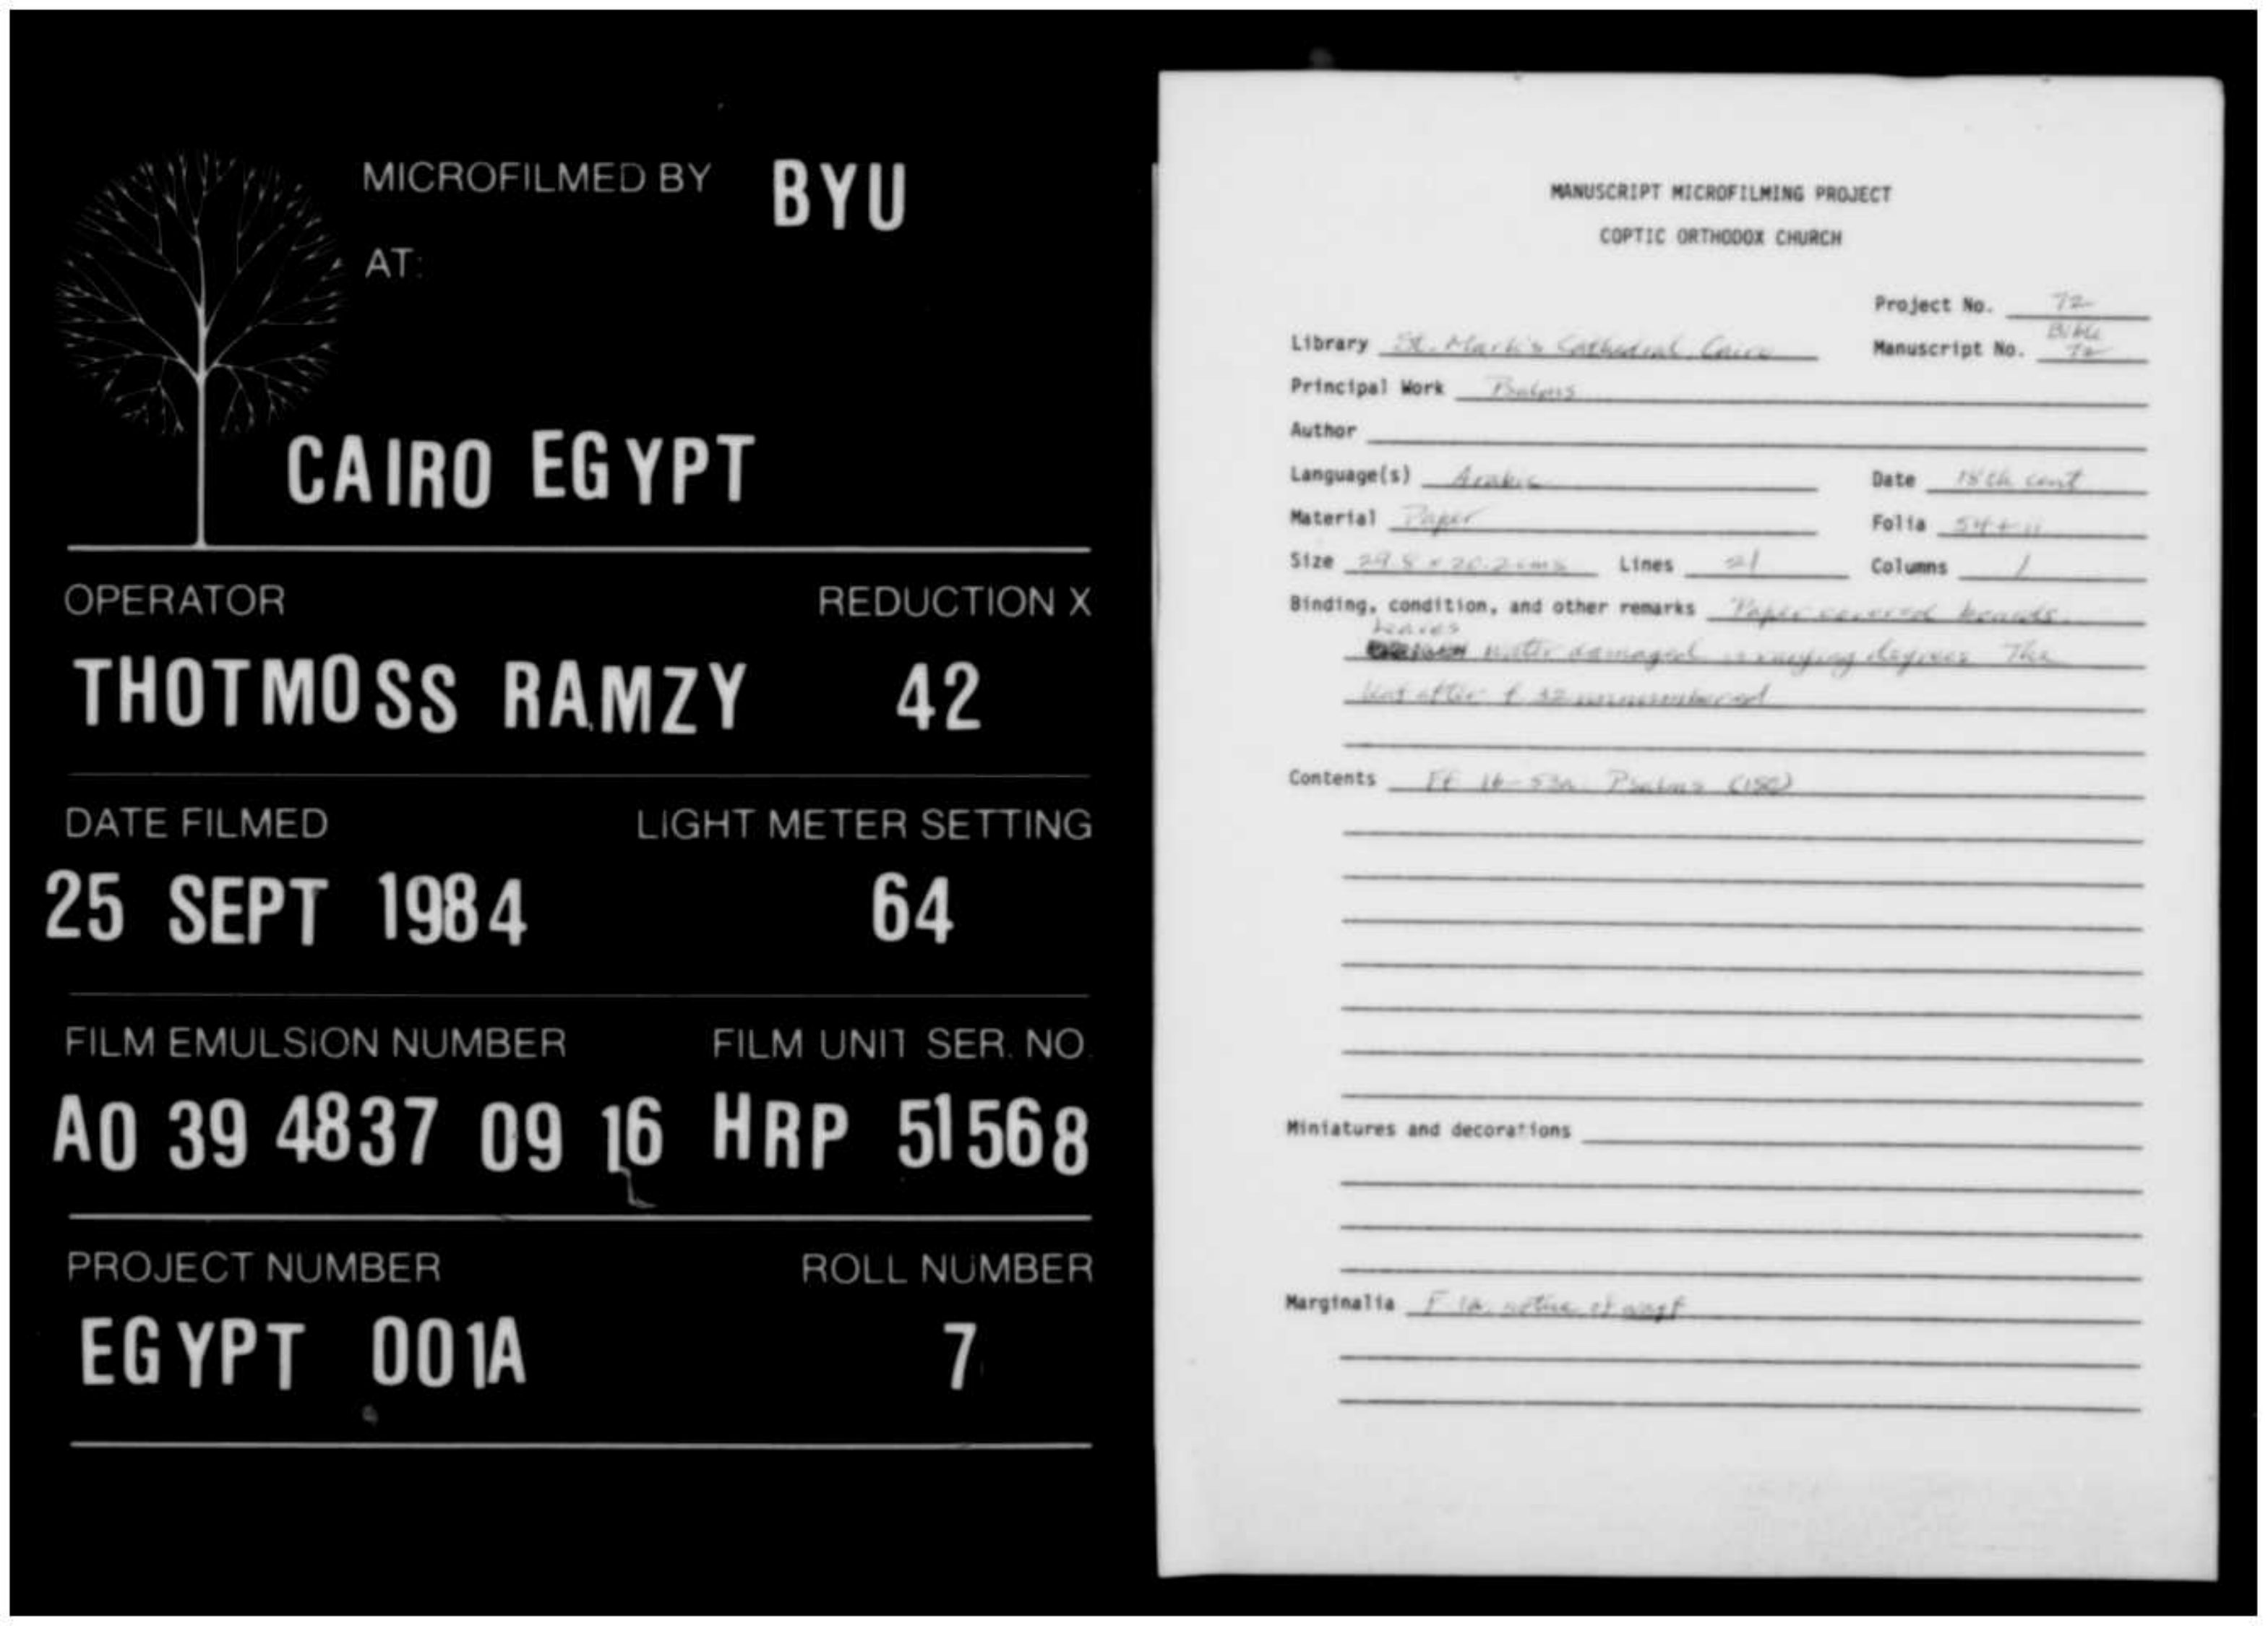 MICROFILMED BY BYU
AT:
CAIRO EGYPT
OPERATOR REDUCTION X
THOTMOSS RAMZY 42
DATE FILMED LIGHT METER SETTING
25 SEPT 1984 64
FILM EMULSION NUMBER FILM UNIT SER. NO.
A0 39 4837 09 16 HRP 51568
PROJECT NUMBER ROLL NUMBER
EGYPT 001A 7
MANUSCRIPT MICROFILMING PROJECT
COPTIC ORTHODOX CHURCH
Project No. 72
Library St. Mark's Cathedral, Cairo Manuscript No. Bible 72
Principal Work Psalms
Author
Language(s) Arabic Date 18th cent
Material Paper Folia 54 + ii
Size 29.8 x 20.2 cms Lines 21 Columns 1
Binding, condition, and other remarks Paper covered boards.
Leaves water damaged in varying degrees The
leaf after f. 32 unnumbered
Contents Ff. 1b-53a. Psalms (150)
Miniatures and decorations
Marginalia F. 1a, notice of waqf